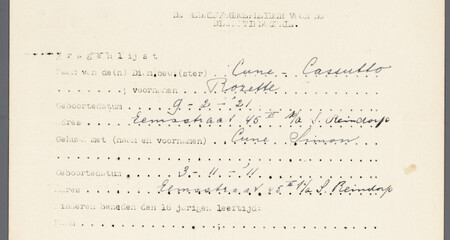 Vragenlijst
Naam van de(n) Dienbew.(ster) Cune - Cassutto
; voornamen Rozette
Geboortedatum 9-2-'21
Adres Eemsstraat 45 II b/a S. Reindorp
Gehuwd met (naam en voornamen) Cune Simon
Geboortedatum 3-11-'11
Adres Eemsstraat 45 II b/a S. Reindorp
Kinderen beneden den 16 jarigen leeftijd: